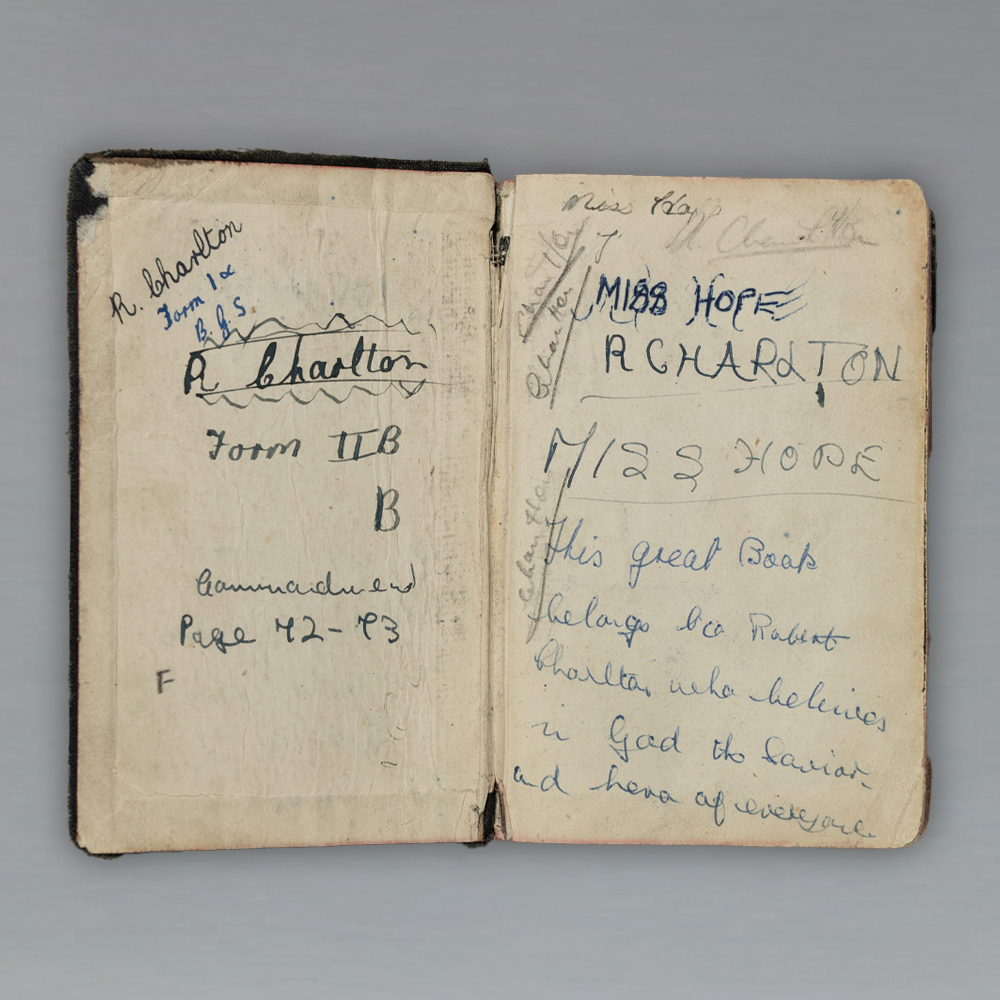 R. Charlton
Form 1α
B.G.S.
R Charlton
Form IIB
B
Commandment
Page 72-73
F
Miss Hope
R Charlton
Charlton
Charlton
MISS HOPE
R CHARLTON
MISS HOPE
Charlton
This great Book
belongs to Robert
Charlton who believes
in God the Savior
and hero of everyone.